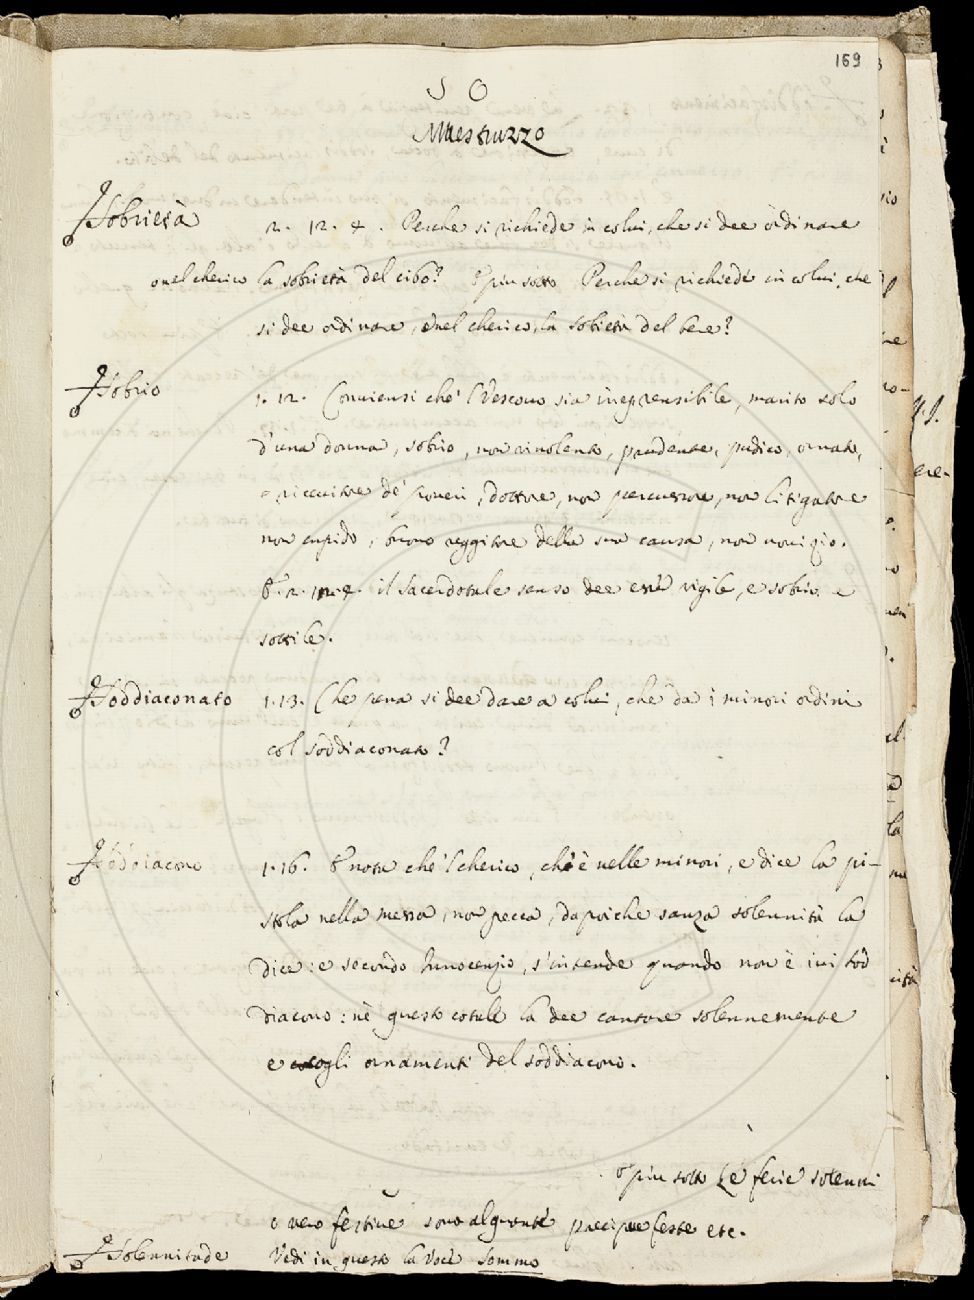 169
SO
Maestruzzo
Sobrietà 2. 12. 4. Perche si richiede in colui, che si dee ordinare
o nel cherico la sobrietà del cibo? E piu sotto Perche si richiede in colui, che
si dee ordinare, o nel cherico, la sobietà del bere?
Sobrio 1. 12. Conviensi che 'l Vescovo sia inreprensibile, marito solo
d'una donna, sobrio, non vinolento, prudente, pudico, ornato,
riceuitore de' poveri, dottore, non percussore, non litigatore
non cupido, buono reggitore della sua causa, non novizio.
E. 2. 12. 4. il Sacerdotale senso dee esse' vigile, e sobrio e
sottile.
Soddiaconato 1. 13. Che pena si dee dare a colui, che da i minori ordini
col soddiaconato?
Soddiacono 1. 16. E nota che 'l cherico, ch' è nelle minori, e dice la pi-
stola nella messa, non pecca, dapoiche sanza solennità la
dice: e secondo Innocenzio, s'intende quando non è ivi sod
diacono: nè questo cotale la dee cantare solennemente
e cogli ornamenti del soddiacono.
E piu sotto Le ferie solenni
o vero festive sono alquante precipue feste etc.
Solennitade Vedi in questo la Voce Sommo